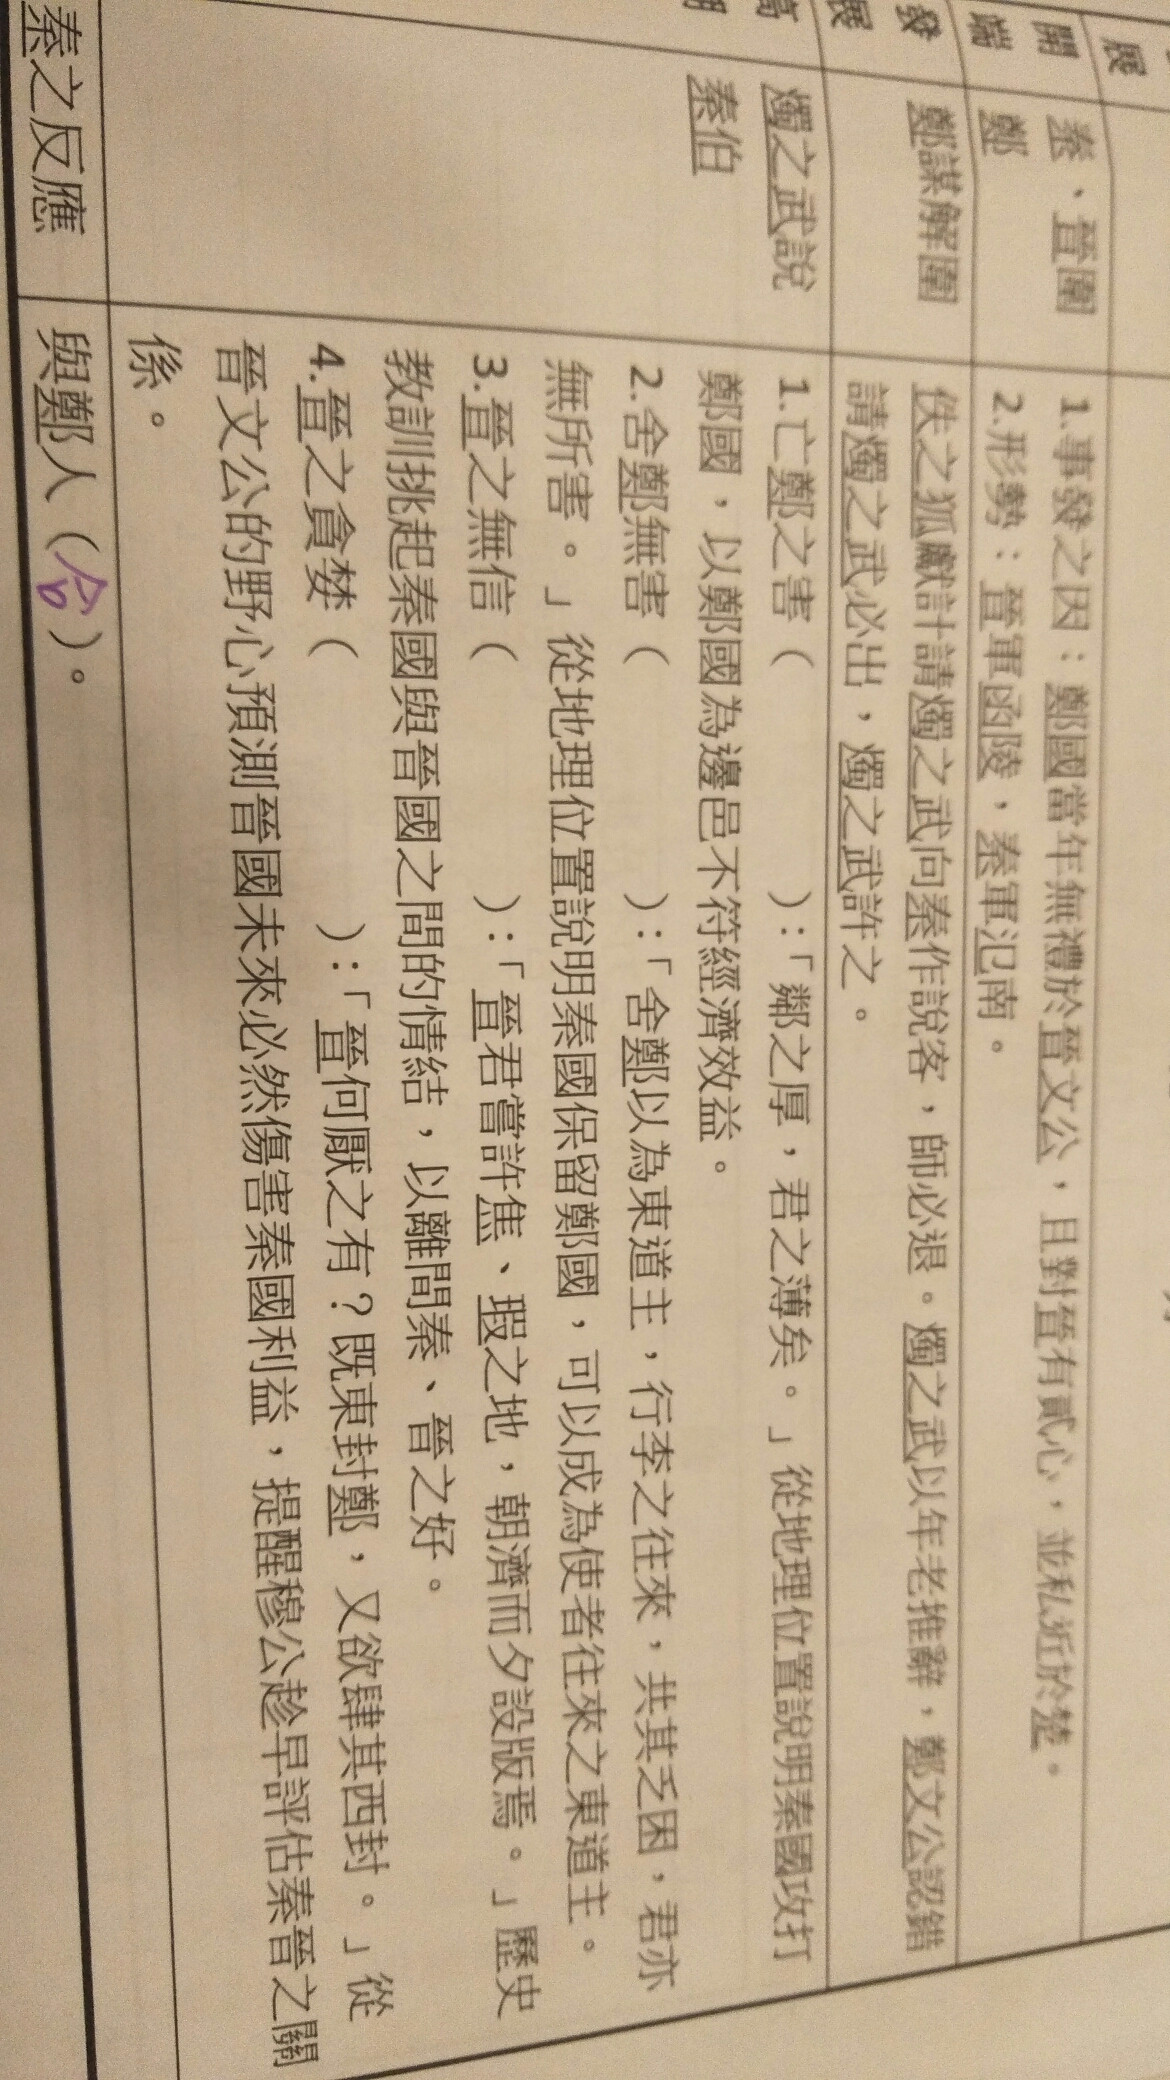 展
開端
秦、晉圍鄭
1.事發之因：鄭國當年無禮於晉文公，且對晉有貳心，並私近於楚。
2.形勢：晉軍函陵，秦軍氾南。
發展
鄭謀解圍
佚之狐獻計請燭之武向秦作說客，師必退。燭之武以年老推辭，鄭文公認錯
請燭之武必出，燭之武許之。
高
燭之武說
秦伯
1.亡鄭之害（ ）：「鄰之厚，君之薄矣。」從地理位置說明秦國攻打
鄭國，以鄭國為邊邑不符經濟效益。
2.舍鄭無害（ ）：「舍鄭以為東道主，行李之往來，共其乏困，君亦
無所害。」從地理位置說明秦國保留鄭國，可以成為使者往來之東道主。
3.晉之無信（ ）：「晉君嘗許焦、瑕之地，朝濟而夕設版焉。」歷史
教訓挑起秦國與晉國之間的情結，以離間秦、晉之好。
4.晉之貪婪（ ）：「晉何厭之有？既東封鄭，又欲肆其西封。」從
晉文公的野心預測晉國未來必然傷害秦國利益，提醒穆公趁早評估秦晉之關
係。
秦之反應
與鄭人（合）。